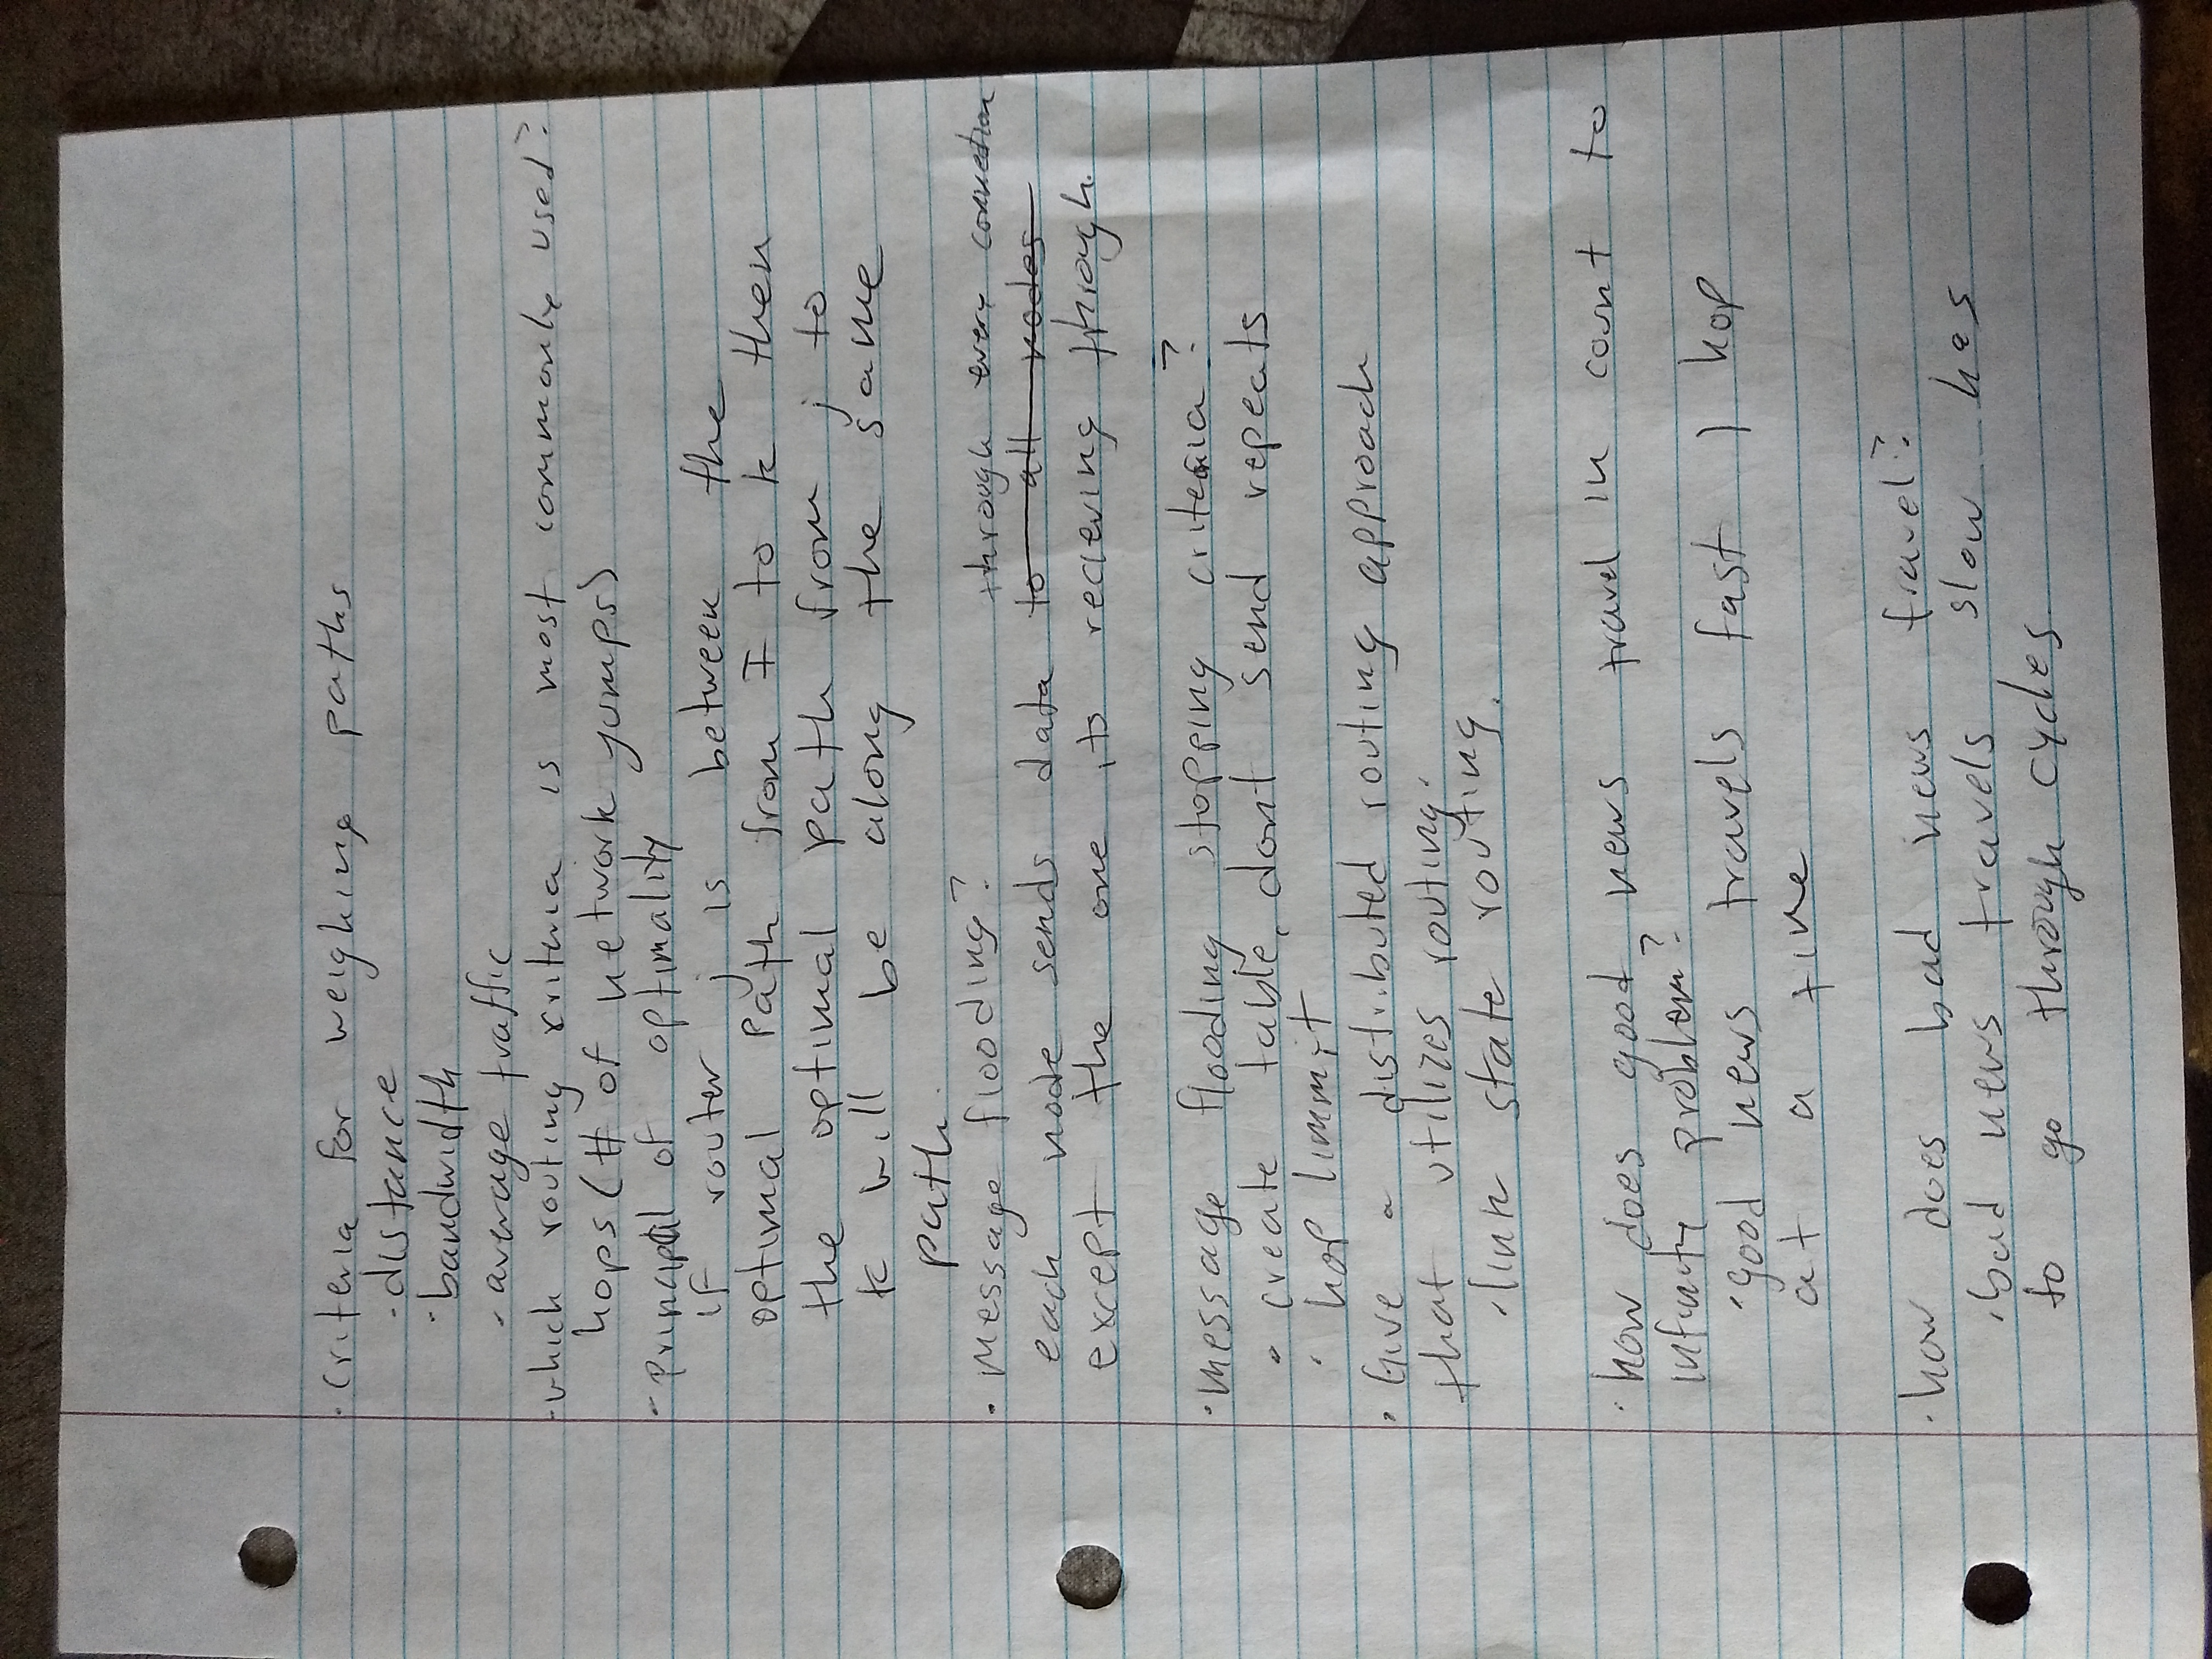 · Criteria for weighing paths
· distance
· bandwidth
· average traffic
· which routing criteria is most commonly used?
hops (# of network jumps)
· principal of optimality
if router j is between the
optimal path from I to k then
the optimal path from j to
k will be along the same
path.
· Message flooding? through every connection
each node sends data to all nodes
except the one its recieving through.
· message flooding stopping criteria?
· create table, dont send repeats
· hop limmit
· Give a distributed routing approach
that utilizes routing.
· link state routing.
· how does good news travel in count to
infinity problem?
· good news travels fast 1 hop
at a time
· how does bad news travel?
· bad news travels slow has
to go through cycles